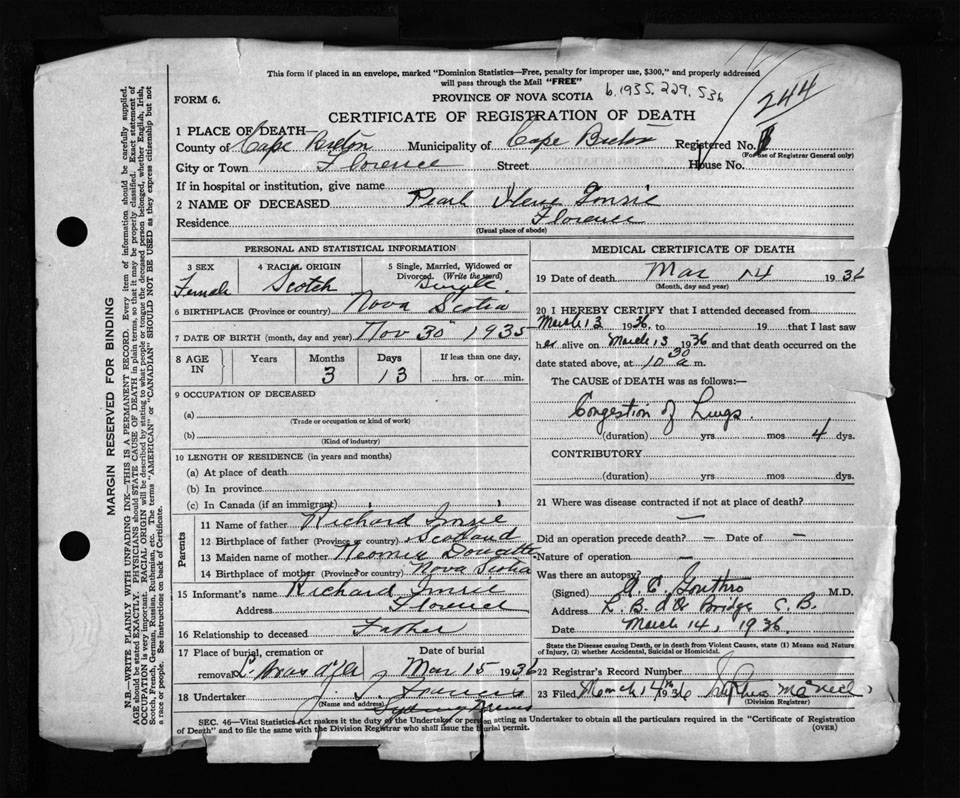 This form if placed in an envelope, marked "Dominion Statistics—Free, penalty for improper use, $300," and properly addressed
will pass through the Mail "FREE"
FORM 6.
PROVINCE OF NOVA SCOTIA
b. 1935. 229. 536
244
CERTIFICATE OF REGISTRATION OF DEATH
1 PLACE OF DEATH—
County of Cape Breton Municipality of Cape Breton Registered No.
(For use of Registrar General only)
City or Town Florence Street House No.
If in hospital or institution, give name
2 NAME OF DECEASED Pearl Ilene Imrie
Residence Florence
(Usual place of abode)
PERSONAL AND STATISTICAL INFORMATION
3 SEX Female
4 RACIAL ORIGIN Scotch
5 Single, Married, Widowed or Divorced. (Write the word) Single.
6 BIRTHPLACE (Province or country) Nova Scotia
7 DATE OF BIRTH (month, day and year) Nov 30 1935
8 AGE IN Years Months 3 Days 13 If less than one day, hrs. or min.
9 OCCUPATION OF DECEASED
(a)
(Trade or occupation or kind of work)
(b)
(Kind of industry)
10 LENGTH OF RESIDENCE (in years and months)
(a) At place of death
(b) In province
(c) In Canada (if an immigrant)
Parents
11 Name of father Richard Imrie
12 Birthplace of father (Province or country) Scotland
13 Maiden name of mother
14 Birthplace of mother (Province or country) Nova Scotia
15 Informant's name Richard Imrie
Address Florence
16 Relationship to deceased Father
17 Place of burial, cremation or removal L. Bras d'Or
Date of burial Mar 15 1936
18 Undertaker J. J.
(Name and address) Sydney Mines
MEDICAL CERTIFICATE OF DEATH
19 Date of death Mar 14 1936
(Month, day and year)
20 I HEREBY CERTIFY that I attended deceased from
March 13 1936, to 19 that I last saw
her alive on March 13 1936 and that death occurred on the
date stated above, at 10 30 a m.
The CAUSE OF DEATH was as follows:—
Congestion of Lungs
(duration) yrs mos 4 dys.
CONTRIBUTORY
(duration) yrs mos dys.
21 Where was disease contracted if not at place of death?
—
Did an operation precede death? — Date of —
Nature of operation —
Was there an autopsy?
(Signed) A. C. Gouthro M.D.
Address L. B. d'Or Bridge C. B.
Date March 14, 1936.
State the Disease causing Death, or in death from Violent Causes, state (1) Means and Nature
of Injury, (2) whether Accidental, Suicidal or Homicidal.
22 Registrar's Record Number
23 Filed March 14th 1936 McNeil
(Division Registrar)
SEC. 46—Vital Statistics Act makes it the duty of the Undertaker or person acting as Undertaker to obtain all the particulars required in the "Certificate of Registration
of Death" and to file the same with the Division Registrar who shall issue the burial permit. (OVER)
MARGIN RESERVED FOR BINDING
N.B.—WRITE PLAINLY WITH UNFADING INK—THIS IS A PERMANENT RECORD. Every item of information should be carefully supplied.
AGE should be stated EXACTLY. PHYSICIANS should STATE CAUSE OF DEATH in plain terms, so that it may be properly classified. Exact statement of
OCCUPATION is very important. RACIAL ORIGIN will be described by stating to what people or tongue the deceased person belonged, whether English, Irish,
Scotch, French, German, Russian, Ruthenian, etc. The terms "AMERICAN" or "CANADIAN" SHOULD NOT BE USED as they express citizenship but not
a race or people. See instructions on back of Certificate.